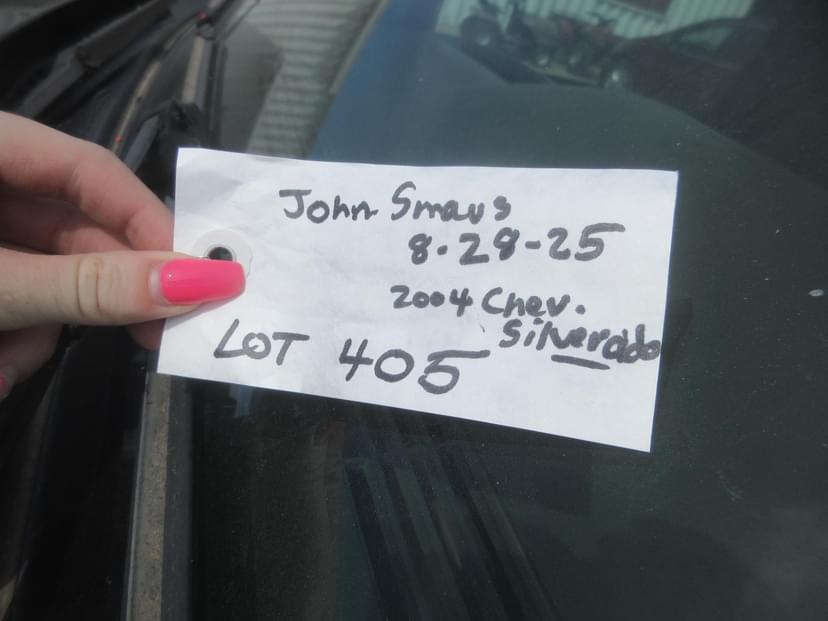 John Smaus
8-28-25
2004 Chev.
Silverado
LOT 405